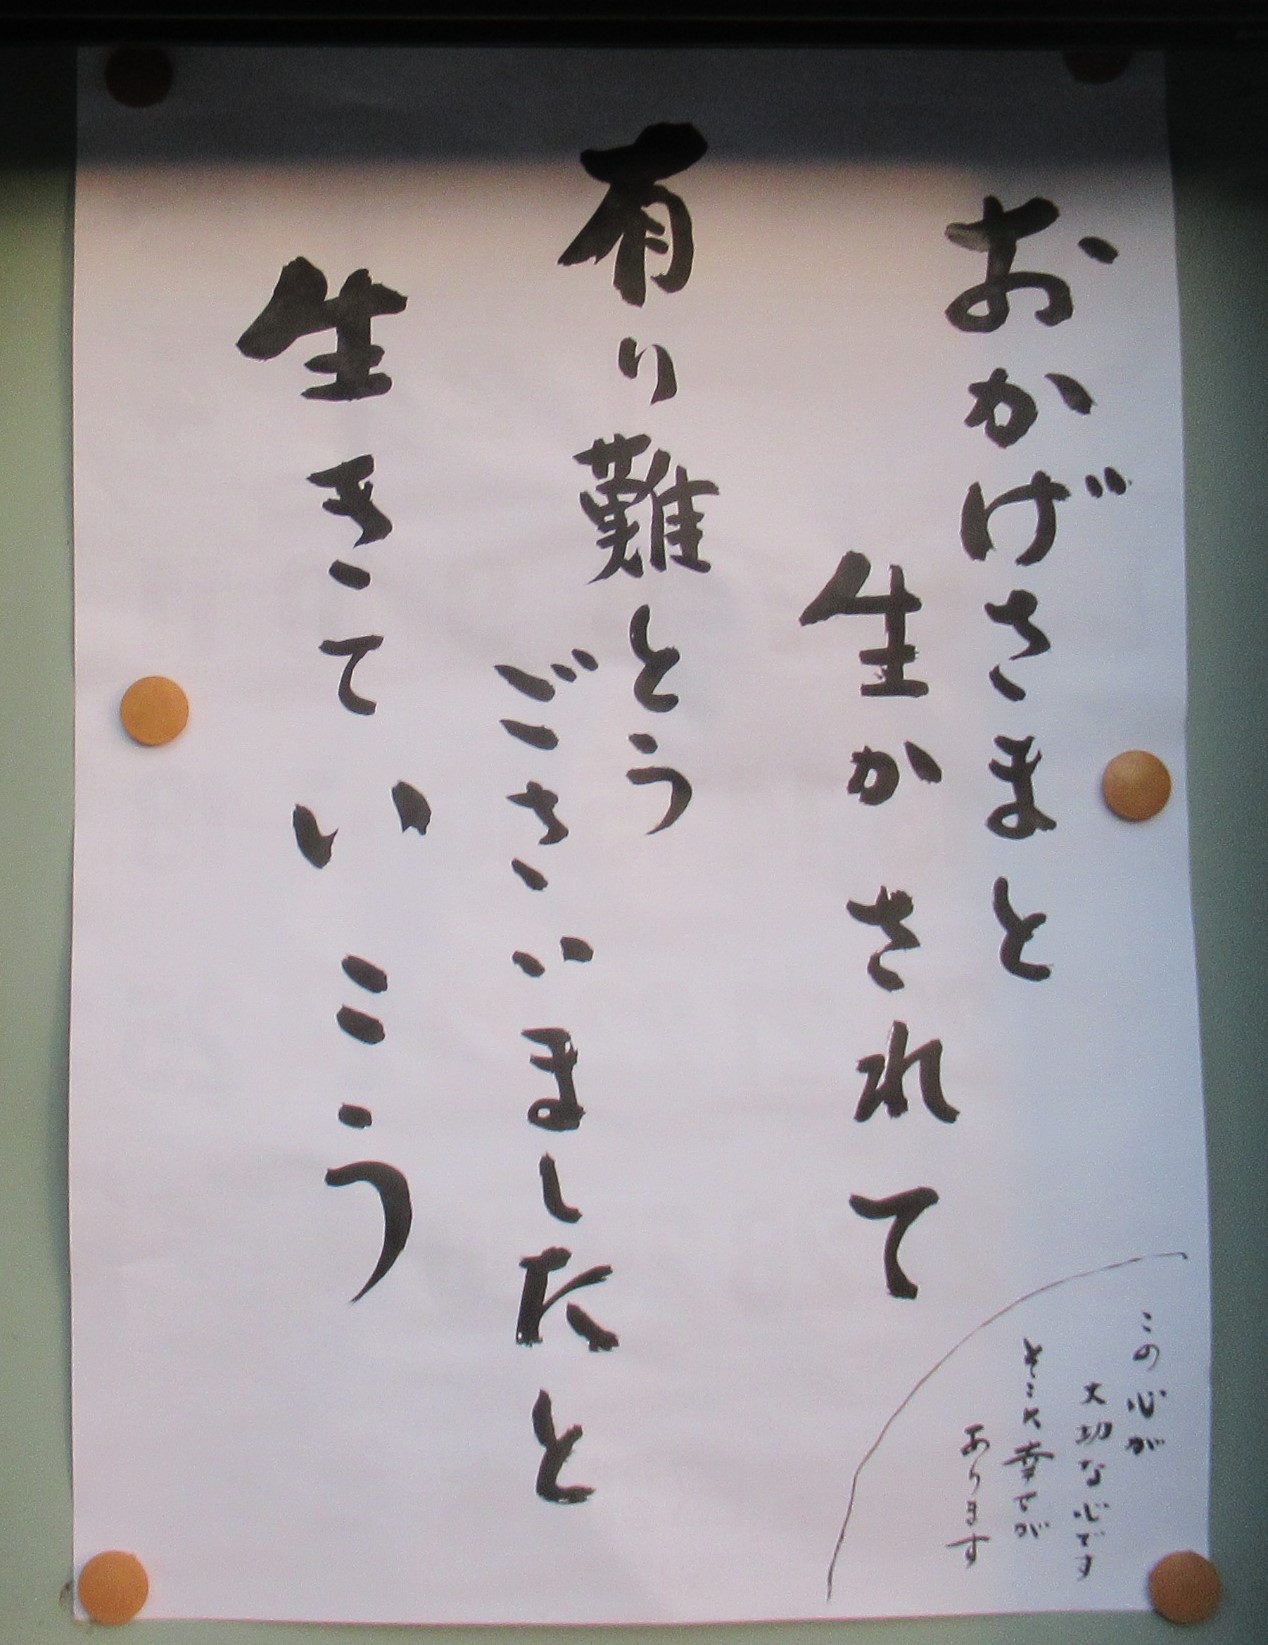 おかげさまと
生かされて
有り難とう
ございましたと
生きていこう
この心が
大切な心です
そこに幸せが
あります